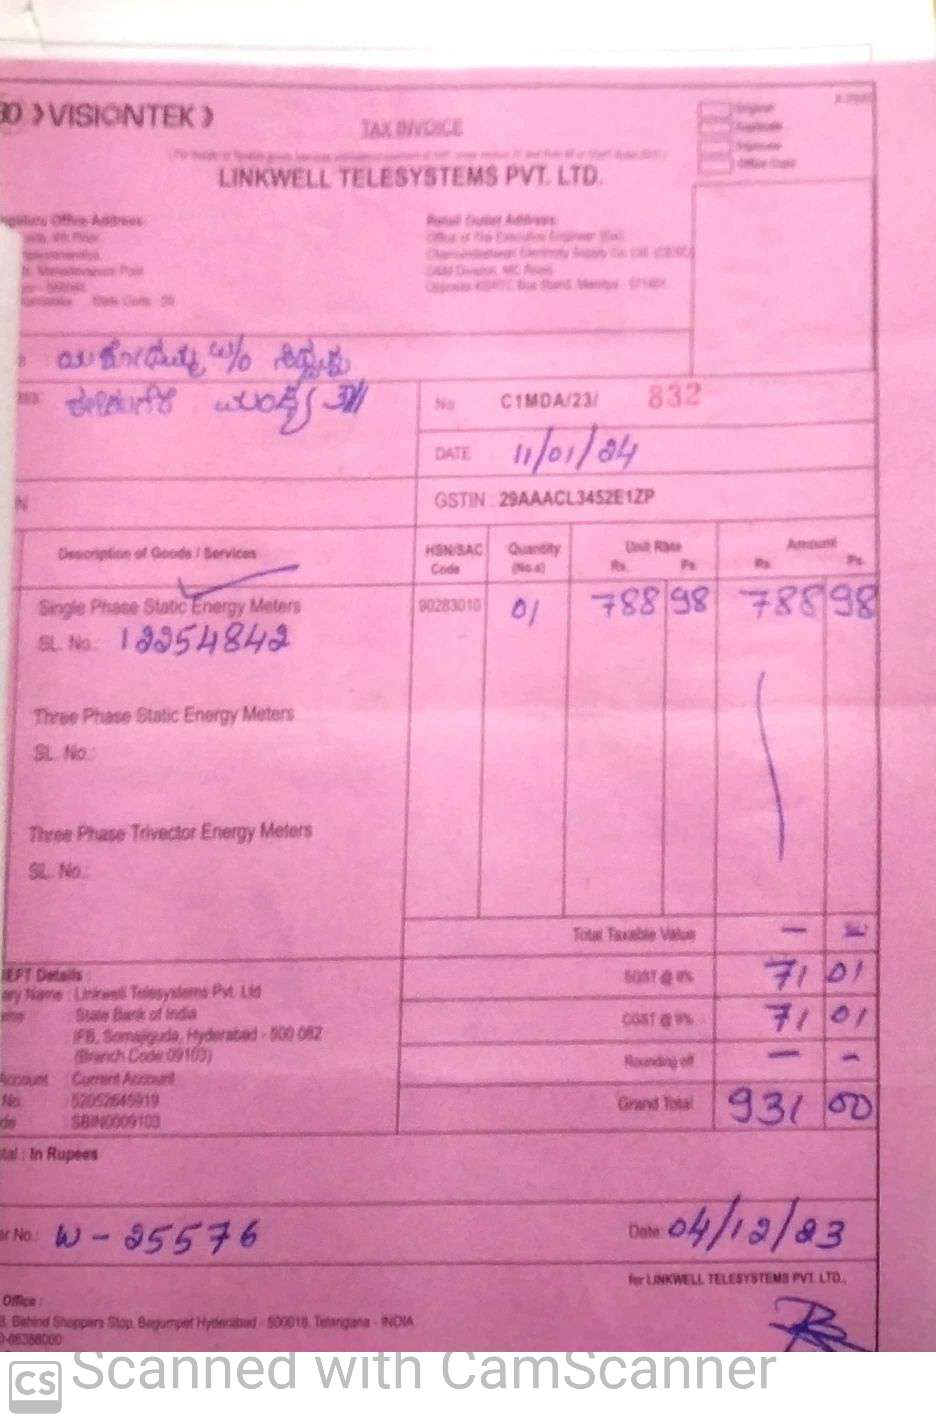 VISIONTEK
TAX INVOICE
LINKWELL TELESYSTEMS PVT. LTD.
Office Address
Retail Outlet Address
Office of The Executive Engineer
Electricity Supply Co. Ltd.
O&M Division, MC Road,
Opposite KSRTC Bus Stand, Mandya -
State Code : 29
W/o
No C1MDA/23/ 832
DATE 11/01/24
GSTIN : 29AAACL3452E1ZP
Description of Goods / Services HSN/SAC Code Quantity (No.s) Unit Rate Rs. Ps. Amount Rs. Ps.
Single Phase Static Energy Meters 90283010 01 788 98 788 98
SL. No.: 12254842
Three Phase Static Energy Meters
SL. No.:
Three Phase Trivector Energy Meters
SL. No.:
Total Taxable Value —
SGST @ 9% 71 01
CGST @ 9% 71 01
Rounding off — -
Grand Total 931 00
EFT Details :
ary Name : Linkwell Telesystems Pvt. Ltd
State Bank of India
IFB, Somajiguda, Hyderabad - 500 082
(Branch Code:09103)
Account Current Account
No. 52052645919
de SBIN0009103
tal : In Rupees
r No.: W - 25576
Date: 04/12/23
for LINKWELL TELESYSTEMS PVT. LTD.,
Office :
Behind Shoppers Stop, Begumpet Hyderabad - 500016, Telangana - INDIA
CS Scanned with CamScanner